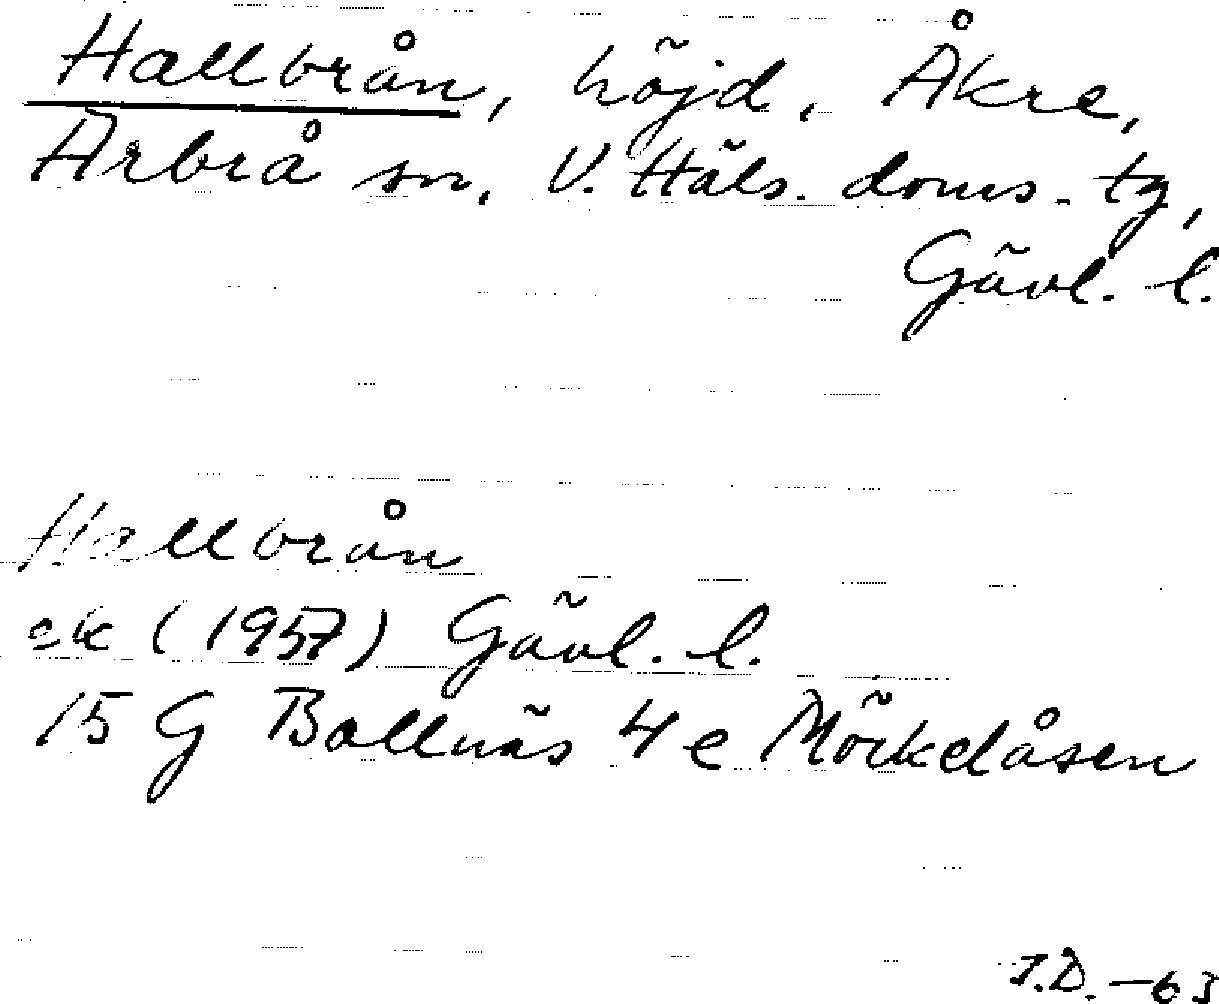 Hallbrån, höjd. Åkre,
Arbrå sn, V. Häls. doms. tg,
Gävl. l.
Hallbrån
ek (1957) Gävl. l.
15 G Bollnäs 4 e Mörkelåsen
J.D. -63